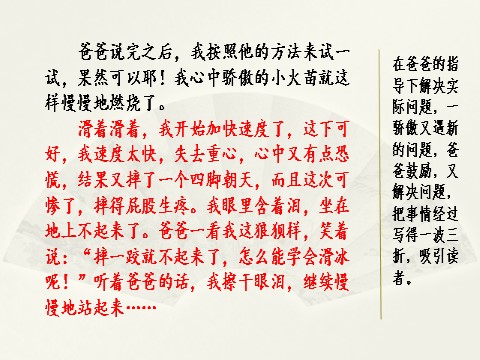 爸爸说完之后，我按照他的方法来试一
试，果然可以耶！我心中骄傲的小火苗就这
样慢慢地燃烧了。
滑着滑着，我开始加快速度了，这下可
好，我速度太快，失去重心，心中又有点恐
慌，结果又摔了一个四脚朝天，而且这次可
惨了，摔得屁股生疼。我眼里含着泪，坐在
地上不起来了。爸爸一看我这狼狈样，笑着
说：“摔一跤就不起来了，怎么能学会滑冰
呢！”听着爸爸的话，我擦干眼泪，继续慢
慢地站起来……
在爸爸的指
导下解决实
际问题，一
骄傲又遇新
的问题，爸
爸鼓励，又
解决问题，
把事情经过
写得一波三
折，吸引读
者。